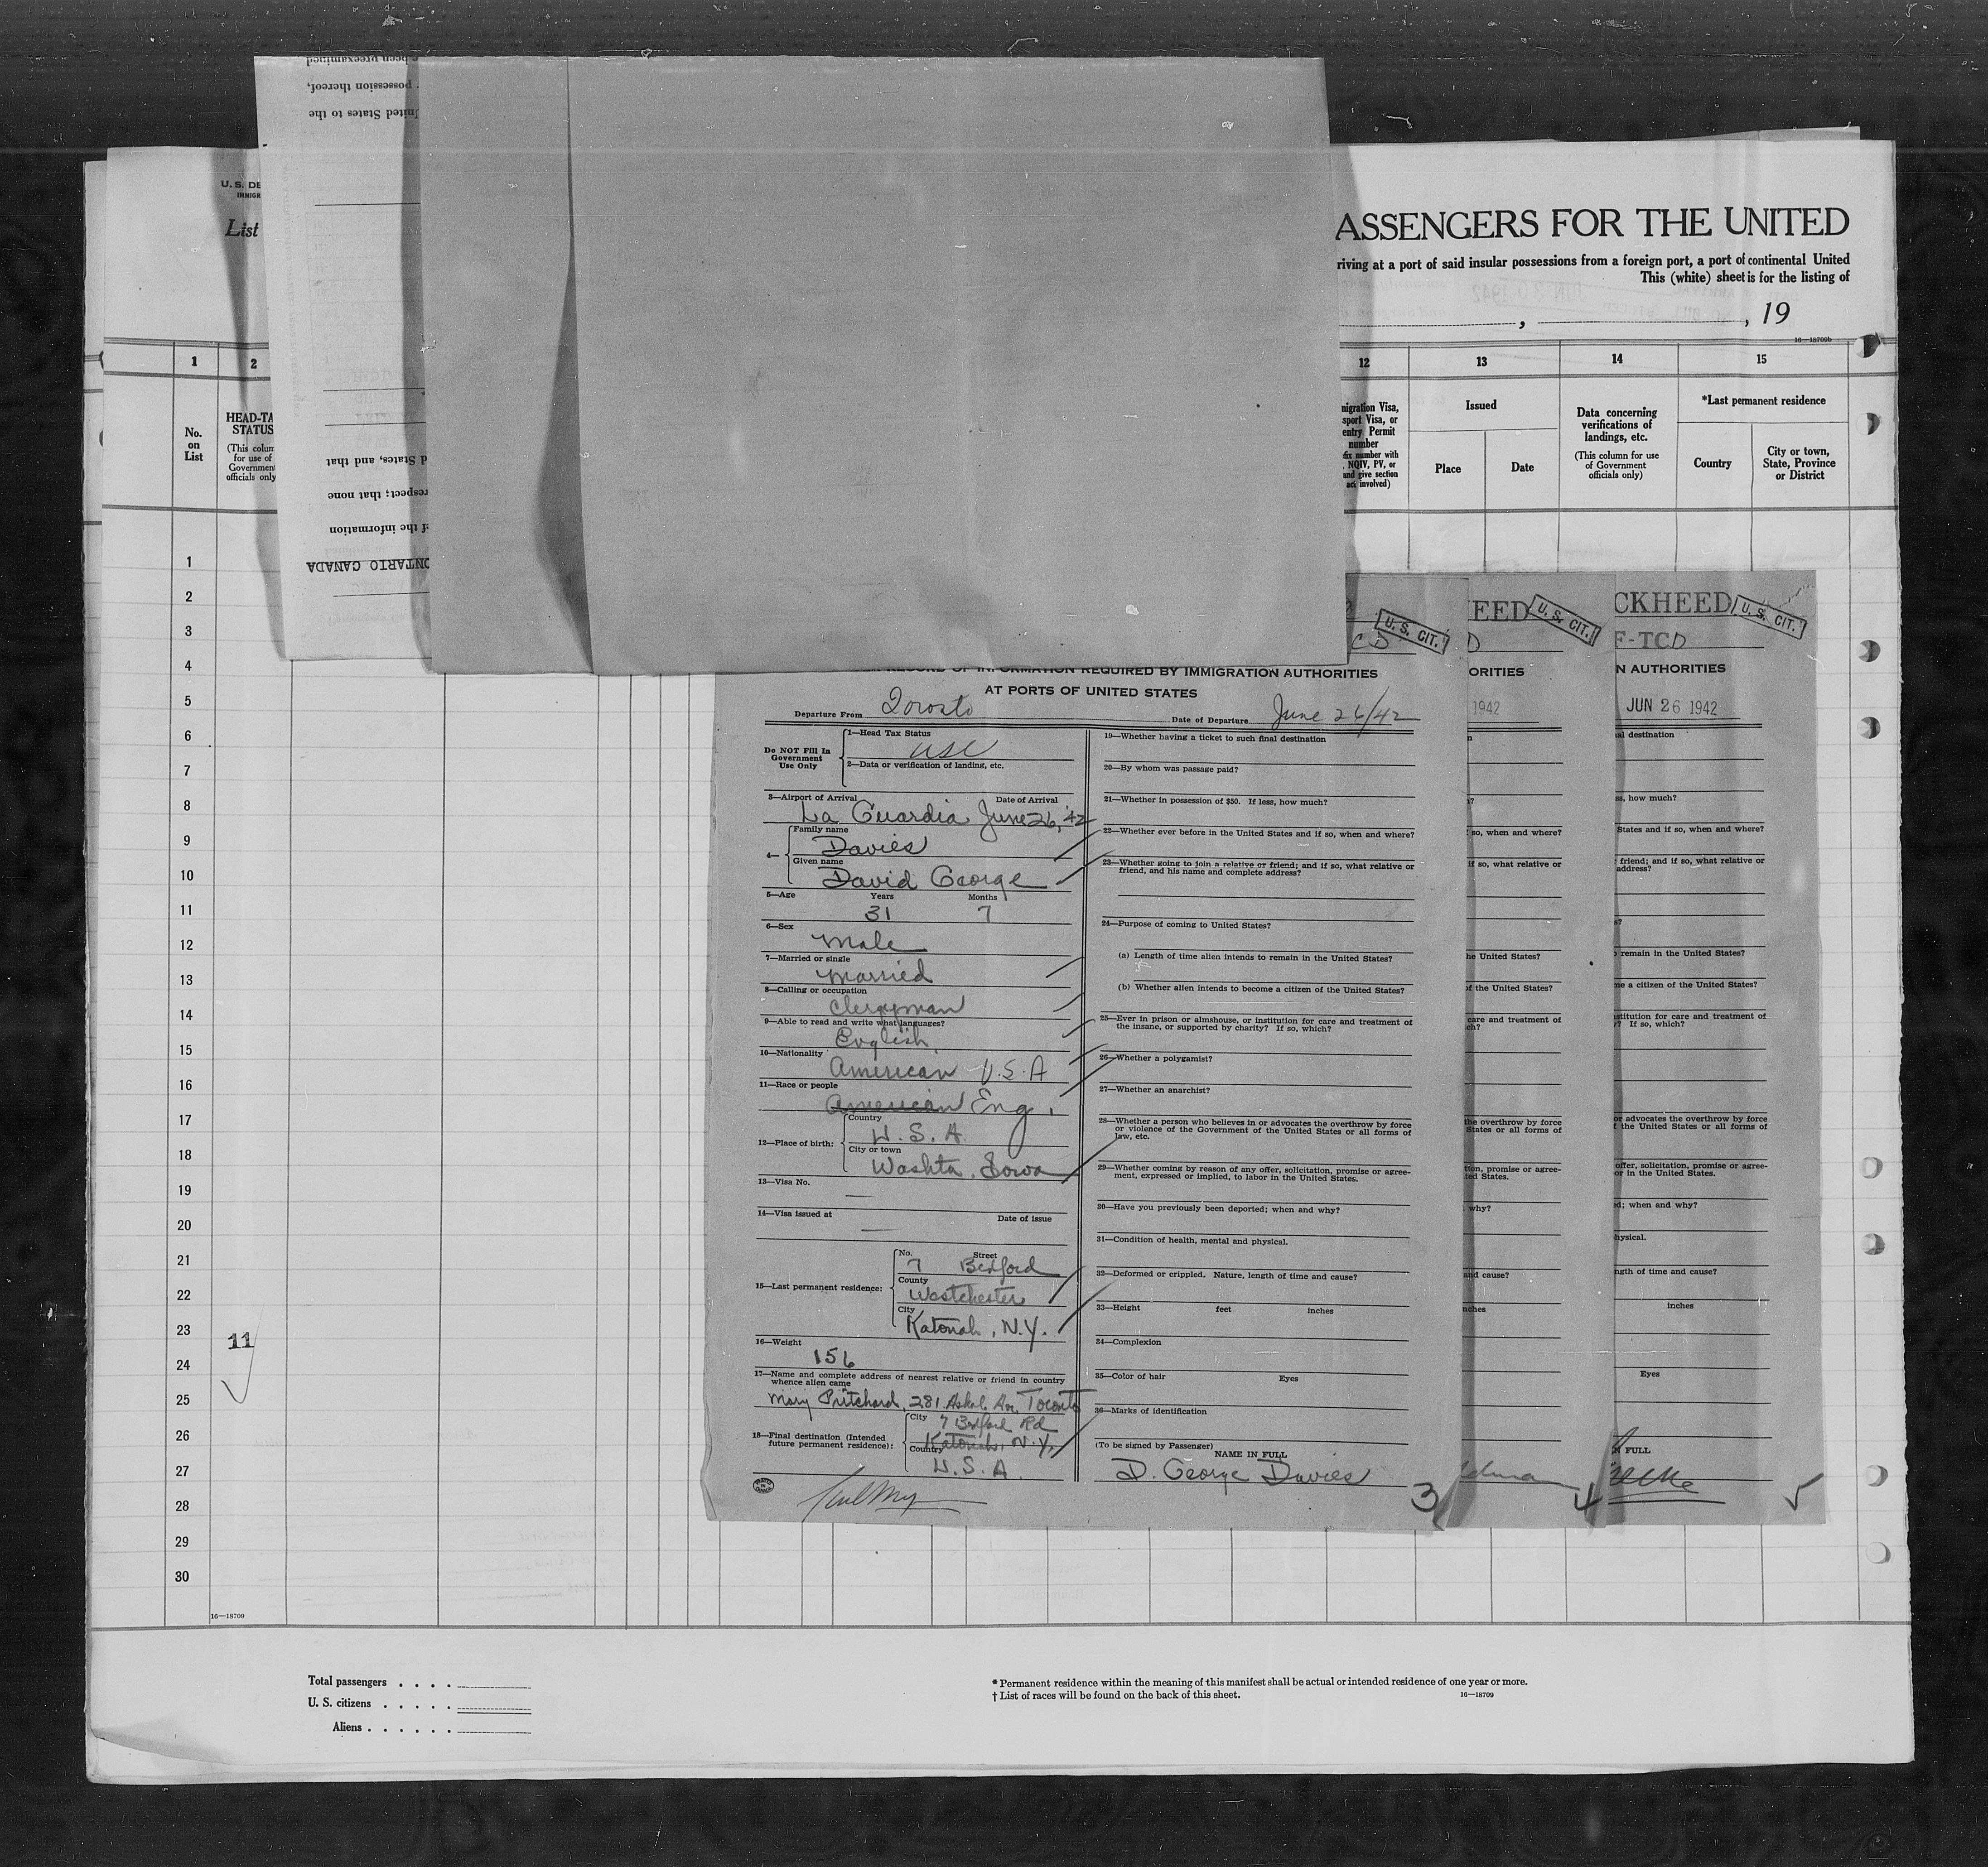 U. S. DE
IMMIGR
List
ASSENGERS FOR THE UNITED
riving at a port of said insular possessions from a foreign port, a port of continental United
This (white) sheet is for the listing of
, 19
16—18709b
1 2 12 13 14 15
No. on List
HEAD-TA
STATUS
(This colum
for use of
Government
officials only
migration Visa,
sport Visa, or
entry Permit
number
fix number with
, NQIV, PV, or
and give section
act involved)
Issued
Place
Date
Data concerning
verifications of
landings, etc.
(This column for use
of Government
officials only)
*Last permanent residence
Country
City or town,
State, Province
or District
been preexamined
possession thereof,
United States to the
d States, and that
respect; that none
f the information
ONTARIO CANADA
1
2
3
4
5
6
7
8
9
10
11
12
13
14
15
16
17
18
19
20
21
22
23
11
24
25
26
27
28
29
30
16—18709
CD
U. S. CIT.
EED
U. S. CIT.
D
CKHEED
U. S. CIT.
F-TCD
RECORD OF INFORMATION REQUIRED BY IMMIGRATION AUTHORITIES
AT PORTS OF UNITED STATES
Departure From Toronto
Date of Departure June 26/42
Do NOT Fill In
Government
Use Only
1—Head Tax Status
USC
2—Data or verification of landing, etc.
3—Airport of Arrival Date of Arrival
La Guardia June 26, '42
4—
Family name
Davies
Given name
David George
5—Age Years Months
31 7
6—Sex
Male
7—Married or single
Married
8—Calling or occupation
Clergyman
9—Able to read and write what languages?
English
10—Nationality
American U.S.A
11—Race or people
American Eng.
12—Place of birth:
Country
U.S.A.
City or town
Washta, Iowa
13—Visa No.
—
14—Visa issued at Date of issue
—
15—Last permanent residence:
No. Street
7 Bedford
County
Westchester
City
Katonah, N.Y.
16—Weight
156
17—Name and complete address of nearest relative or friend in country
whence alien came
Mary Pritchard, 281 Toronto
18—Final destination (Intended
future permanent residence):
City 7 Bedford Rd
Katonah, N.Y.
Country
U.S.A.
19—Whether having a ticket to such final destination
20—By whom was passage paid?
21—Whether in possession of $50. If less, how much?
22—Whether ever before in the United States and if so, when and where?
23—Whether going to join a relative or friend; and if so, what relative or
friend, and his name and complete address?
24—Purpose of coming to United States?
(a) Length of time alien intends to remain in the United States?
(b) Whether alien intends to become a citizen of the United States?
25—Ever in prison or almshouse, or institution for care and treatment of
the insane, or supported by charity? If so, which?
26—Whether a polygamist?
27—Whether an anarchist?
28—Whether a person who believes in or advocates the overthrow by force
or violence of the Government of the United States or all forms of
law, etc.
29—Whether coming by reason of any offer, solicitation, promise or agree-
ment, expressed or implied, to labor in the United States.
30—Have you previously been deported; when and why?
31—Condition of health, mental and physical.
32—Deformed or crippled. Nature, length of time and cause?
33—Height feet inches
34—Complexion
35—Color of hair Eyes
36—Marks of identification
(To be signed by Passenger)
NAME IN FULL
D. George Davies
3
ORITIES
1942
n
?
so, when and where?
if so, what relative or
he United States?
of the United States?
care and treatment of
ch?
the overthrow by force
States or all forms of
tion, promise or agree-
ted States.
why?
and cause?
nches
4
N AUTHORITIES
JUN 26 1942
al destination
s, how much?
States and if so, when and where?
friend; and if so, what relative or
address?
s?
remain in the United States?
me a citizen of the United States?
stitution for care and treatment of
? If so, which?
or advocates the overthrow by force
f the United States or all forms of
offer, solicitation, promise or agree-
or in the United States.
ed; when and why?
hysical.
ngth of time and cause?
inches
Eyes
N FULL
Total passengers . . . .
U. S. citizens . . . . .
Aliens . . . . . .
* Permanent residence within the meaning of this manifest shall be actual or intended residence of one year or more.
† List of races will be found on the back of this sheet.
16—18709